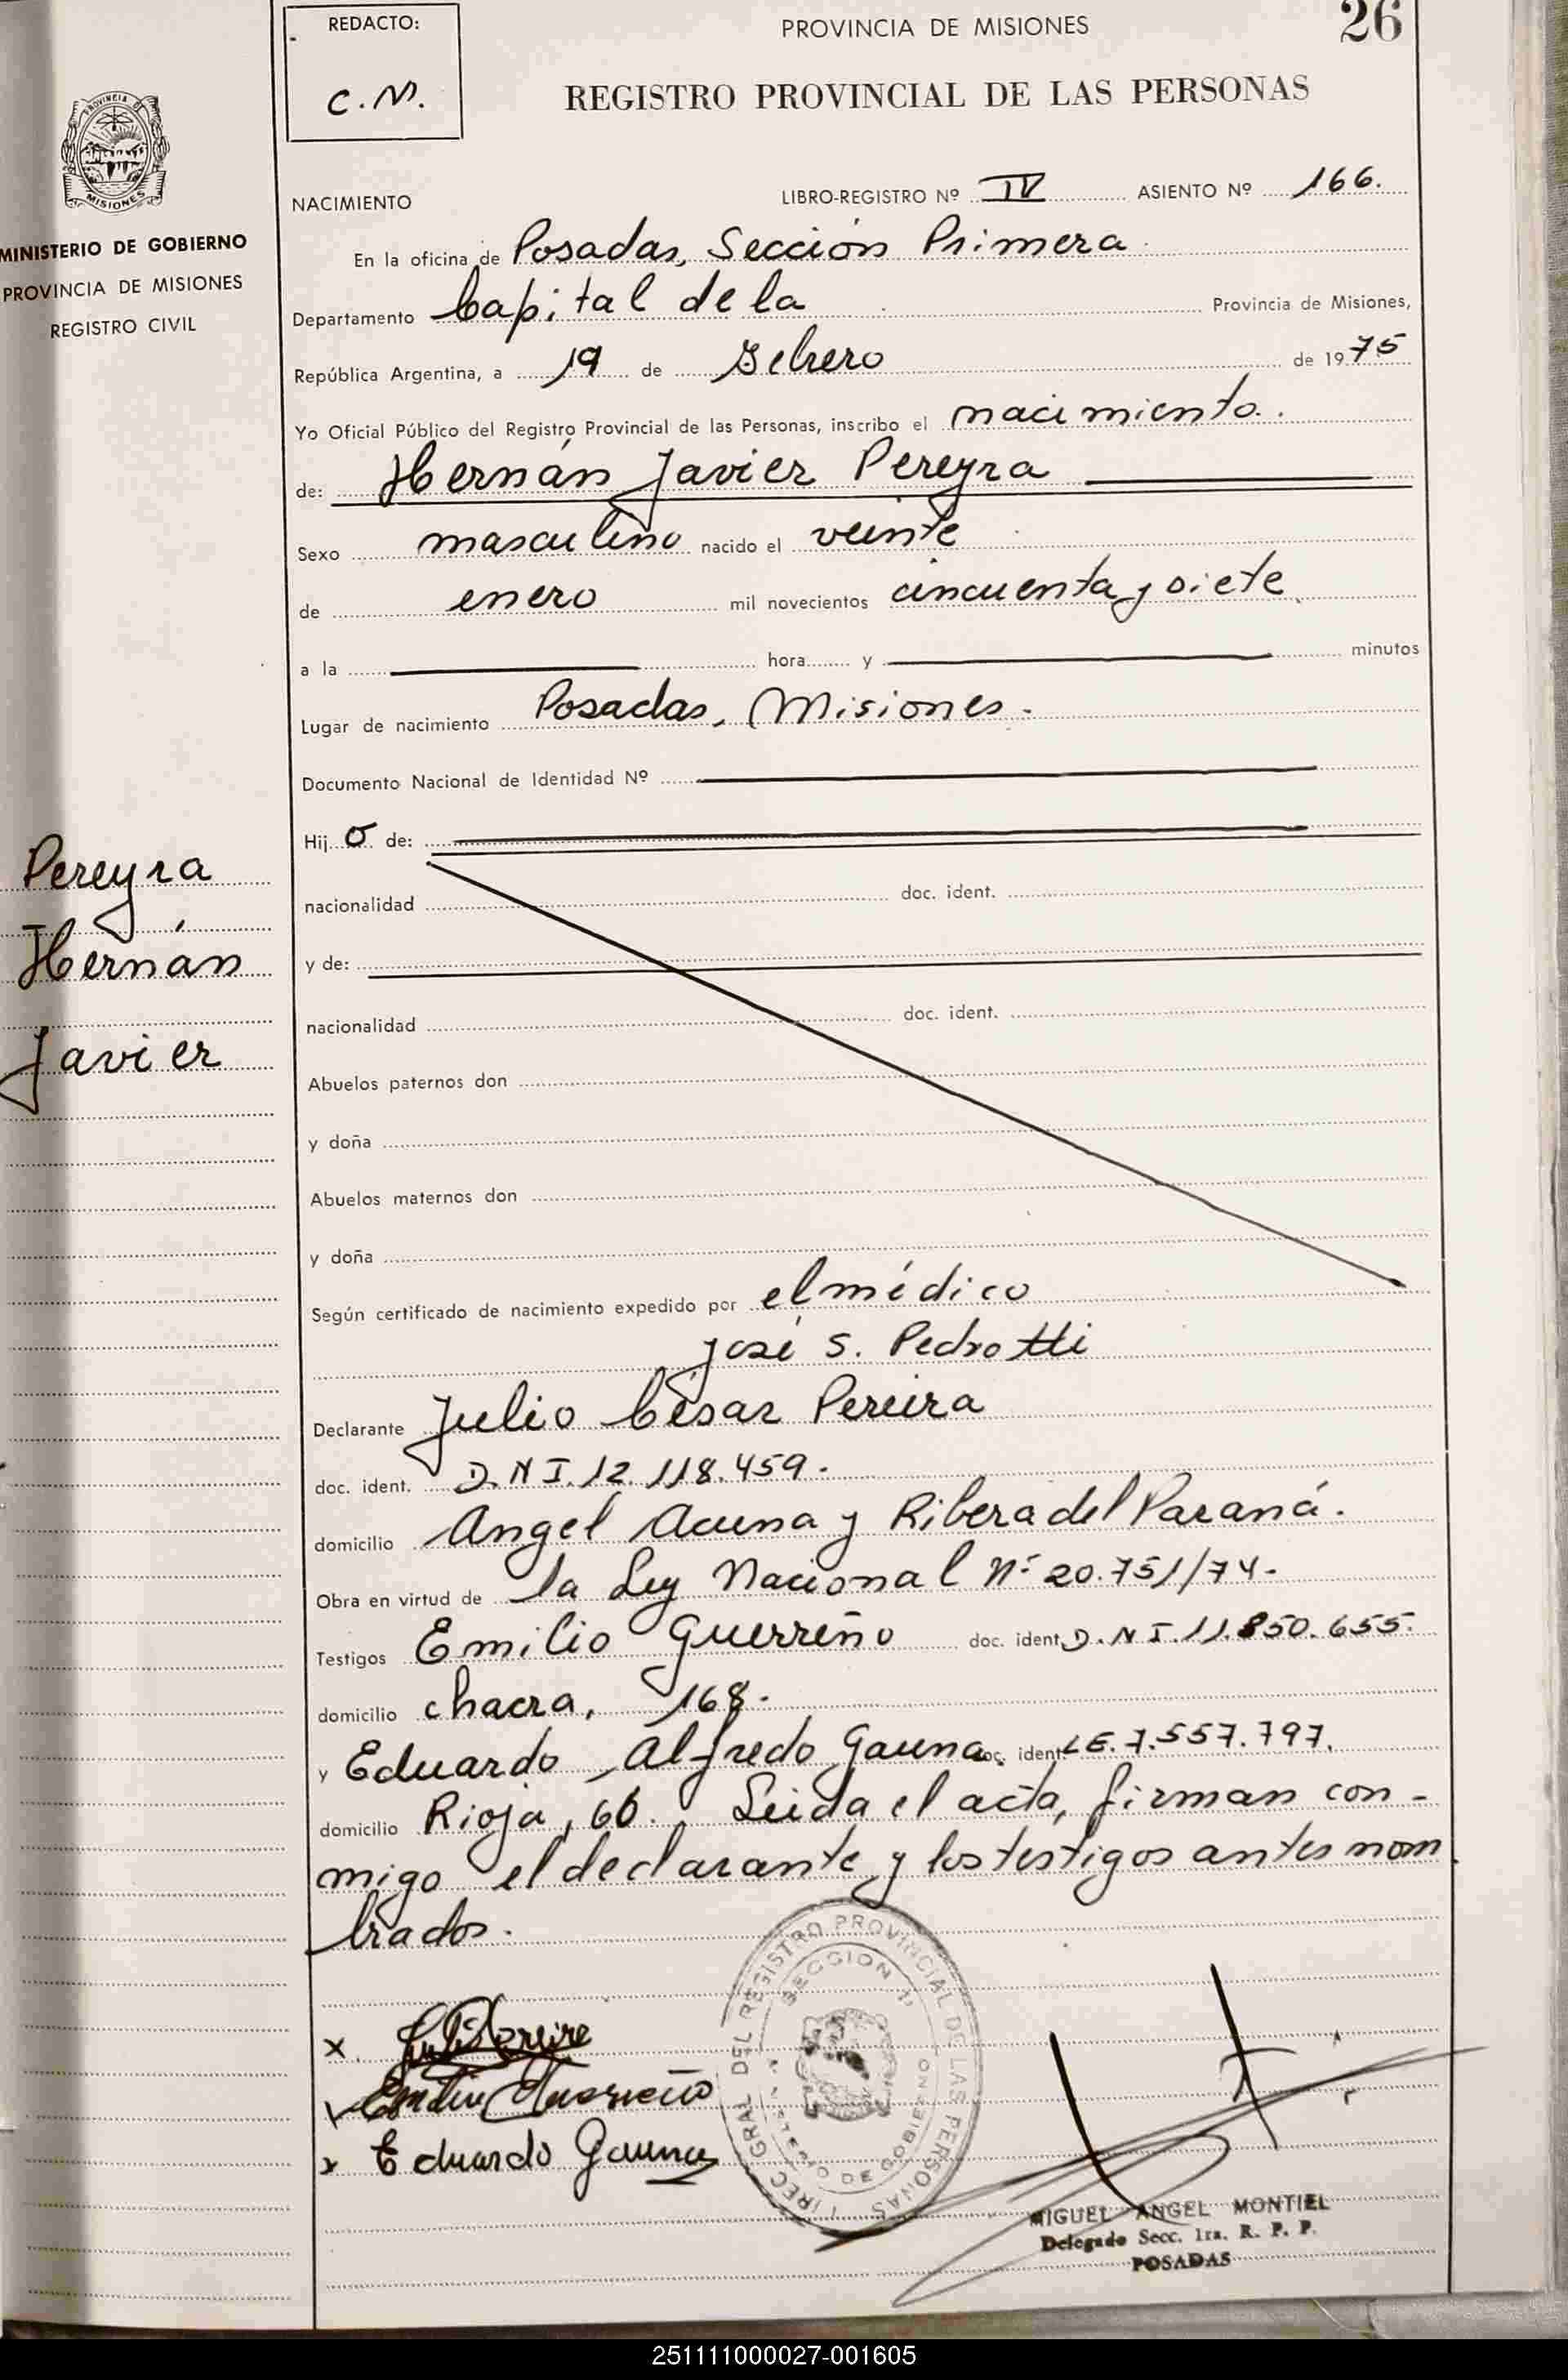 REDACTO:
C.M.
PROVINCIA DE MISIONES
26
REGISTRO PROVINCIAL DE LAS PERSONAS
PROVINCIA
MISIONES
MINISTERIO DE GOBIERNO
PROVINCIA DE MISIONES
REGISTRO CIVIL
NACIMIENTO
LIBRO-REGISTRO Nº IV ASIENTO Nº 166.
En la oficina de Posadas, Sección Primera
Departamento Capital de la Provincia de Misiones,
República Argentina, a 19 de Febrero de 1975
Yo Oficial Público del Registro Provincial de las Personas, inscribo el nacimiento.
de: Hernán Javier Pereyra
Sexo masculino nacido el veinte
de enero mil novecientos cincuenta y siete
a la hora y minutos
Lugar de nacimiento Posadas, Misiones.
Documento Nacional de Identidad Nº
Hijo de:
nacionalidad doc. ident.
y de:
nacionalidad doc. ident.
Abuelos paternos don
y doña
Abuelos maternos don
y doña
Pereyra
Hernán
Javier
Según certificado de nacimiento expedido por el médico
José S. Pedrotti
Declarante Julio César Pereira
doc. ident. D.N I.12.118.459.
domicilio Angel Acuna y Ribera del Paraná.
Obra en virtud de la Ley Nacional Nº 20.751/74.
Testigos Emilio Guerreño doc. ident. D.N I.11.850.655.
domicilio chacra, 168.
y Eduardo Alfredo Gauna doc. ident. LE.7.557.797.
domicilio Rioja, 66. Leida el acta, firman con-
migo el declarante y los testigos antes nom
brados.
x Julio Pereira
Emilio Guerreño
x Eduardo Gauna
DIREC. GRAL DEL REGISTRO PROVINCIAL DE LAS PERSONAS
SECCION 1ª
MINISTERIO DE GOBIERNO
MIGUEL ANGEL MONTIEL
Delegado Secc. 1ra. R. P. P.
POSADAS
251111000027-001605